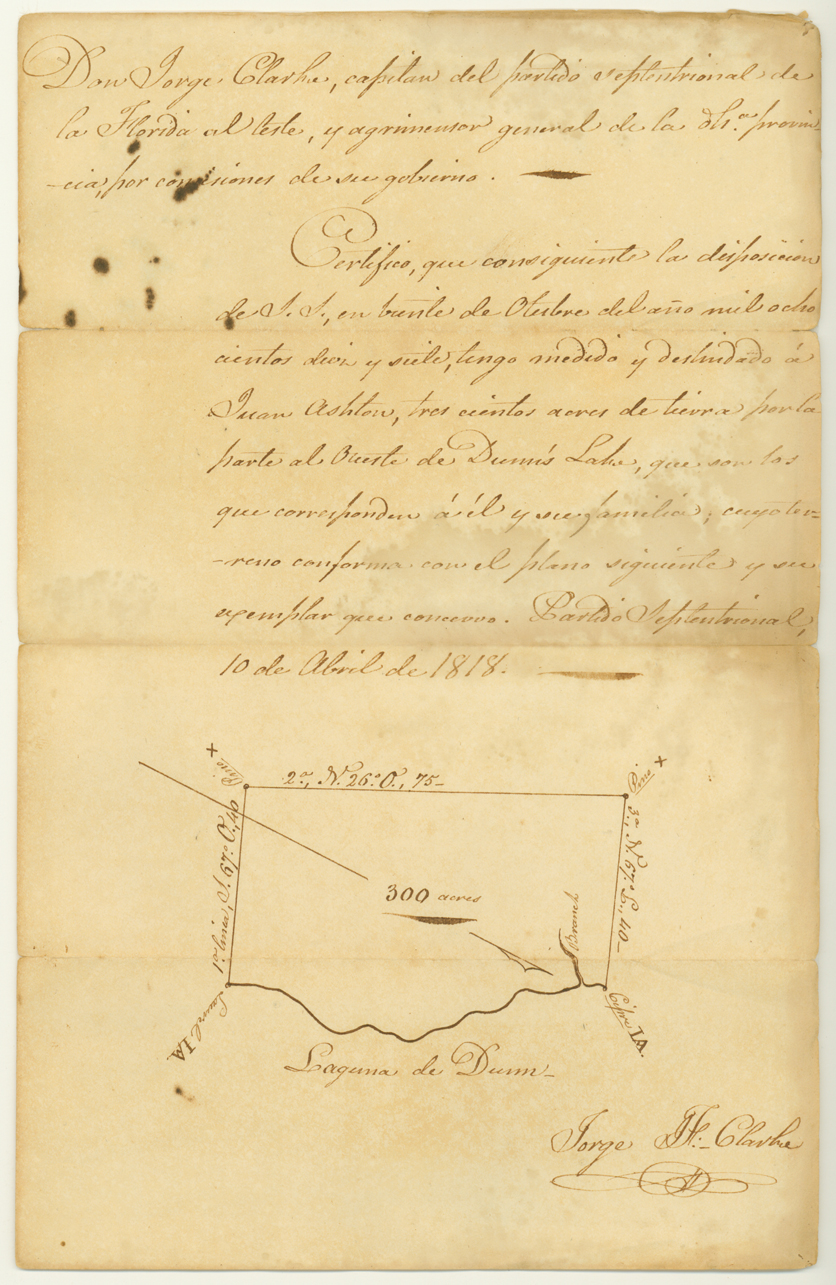 Don Jorge Clarke, capitan del partido septentrional de
la Florida al leste, y agrimensor general de la dha. provin-
-cia, por comisiones de su gobierno.
Certifico, que consiguiente la disposicion
de S. S., en veinte de Otubre del año mil ocho
cientos diez y siete, tengo medido y deslindado á
Juan Ashton, tres cientos acres de tierra por la
parte al Oueste de Dunn's Lake, que son los
que corresponden á él y su familia; cuyo ter-
-reno conforma con el plano siguiente y su
exemplar que concervo. Partido Septentrional,
10 de Abril de 1818.
Pine X
2a., N. 26° O., 75-
Pine X
1a. linea, S. 67° O., 40
3a. N. 67° E., 40-
300 acres
Branch
Laurel IA
Cipre IA.
Laguna de Dunn-
Jorge J. F. Clarke